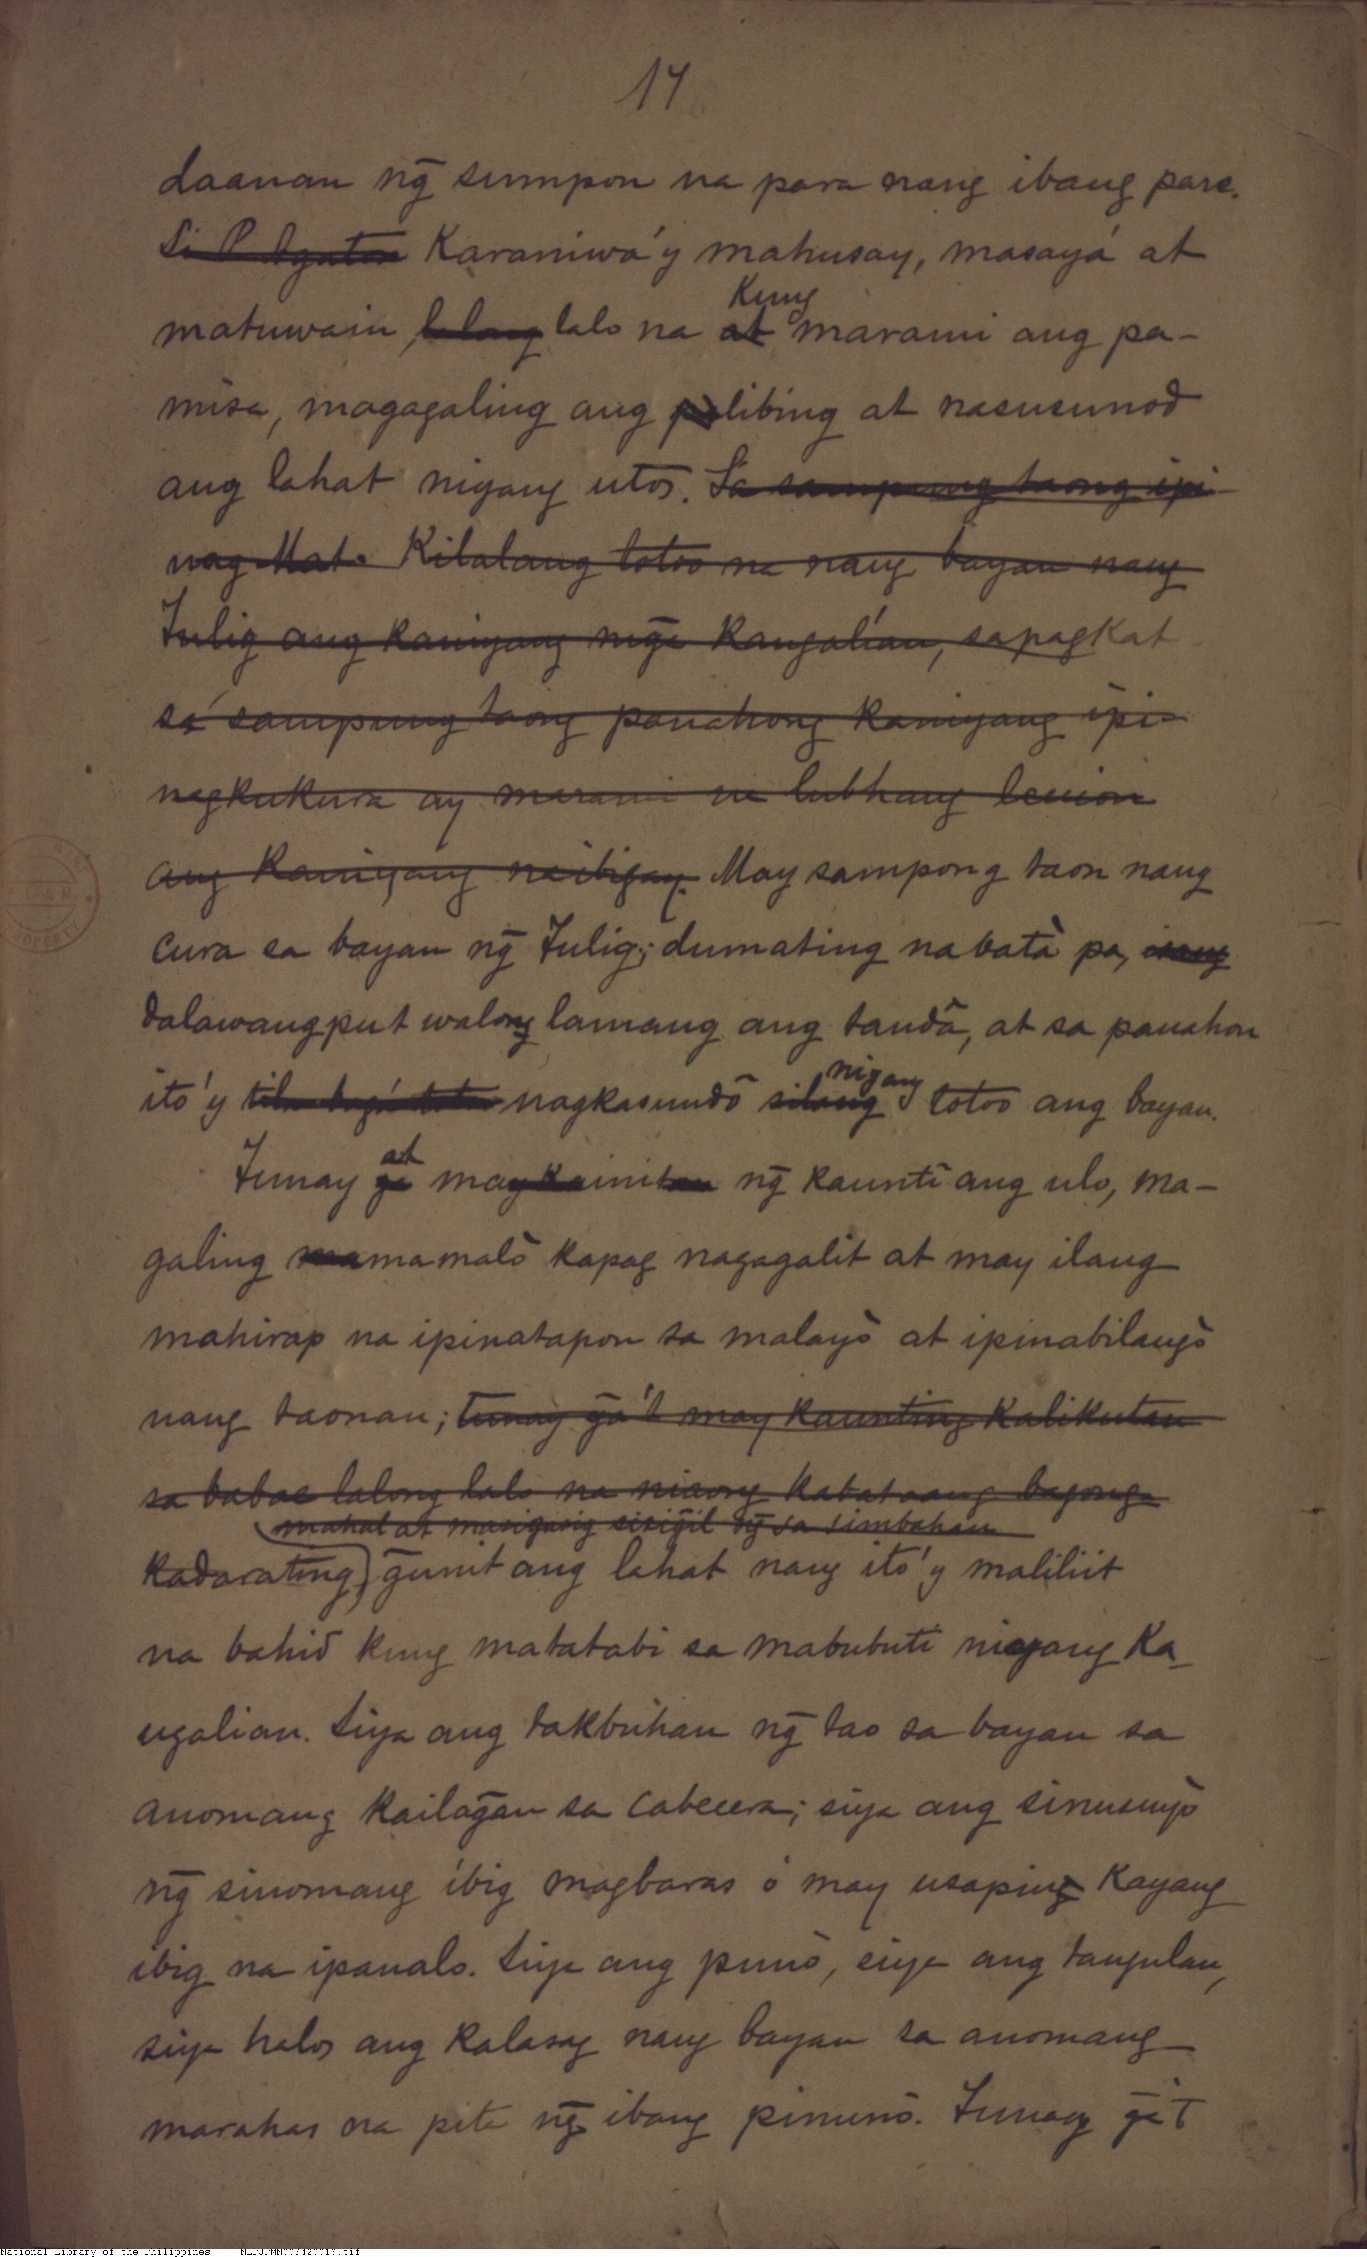 14
daanan ng̃ sumpon na para nang ibang pare.
Si P Agaton Karaniwa'y mahusay, masayá at
Kung
matuwain, lalong lalo na at marami ang pa-
misa, magagaling ang palibing at nasusunod
ang lahat niyang utos. Sa sampung taong ipi-
nag Kilalang totoo na nang bayan nang
Tulig ang kaniyang mg̃a kaugalían, sapagkat
sa sampung taong panahong kaniyang ipi-
nagkukura ay marami na lubhang leccion
ang kaniyang naibigay. May sampong taon nang
cura sa bayan ng̃ Tulig; dumating na batà pa, isang
dalawangput walong lamang ang tandã, at sa panahon
niyang
ito'y nagkasundõ silang totoo ang bayan.
at
Tunay g̃a may kainitan ng̃ kaunti ang ulo, ma-
galing mamalò kapag nagagalit at may ilang
mahirap na ipinatapon sa malayò at ipinabilangò
nang taonan; tunay g̃a't may kaunting kalikutan
sa babae lalong lalo na niaong kabataang bagong
mahal at masigasig ng̃ sa simbahan
kadarating, g̃unit ang lahat nang ito'y maliliit
na bahid kung matatabi sa mabubuti niyang ka-
ugalian. Siya ang takbuhan ng̃ tao sa bayan sa
anomang kailag̃an sa cabecera; siya ang sinusuyò
ng̃ sinomang íbig magbaras ó may usaping kayang
ibig na ipanalo. Siya ang punò, siya ang tangulan,
siya halos ang kalasag nang bayan sa anomang
marahas na pita ng̃ ibang pinunò. Tunay g̃a't
National Library of the Philippines